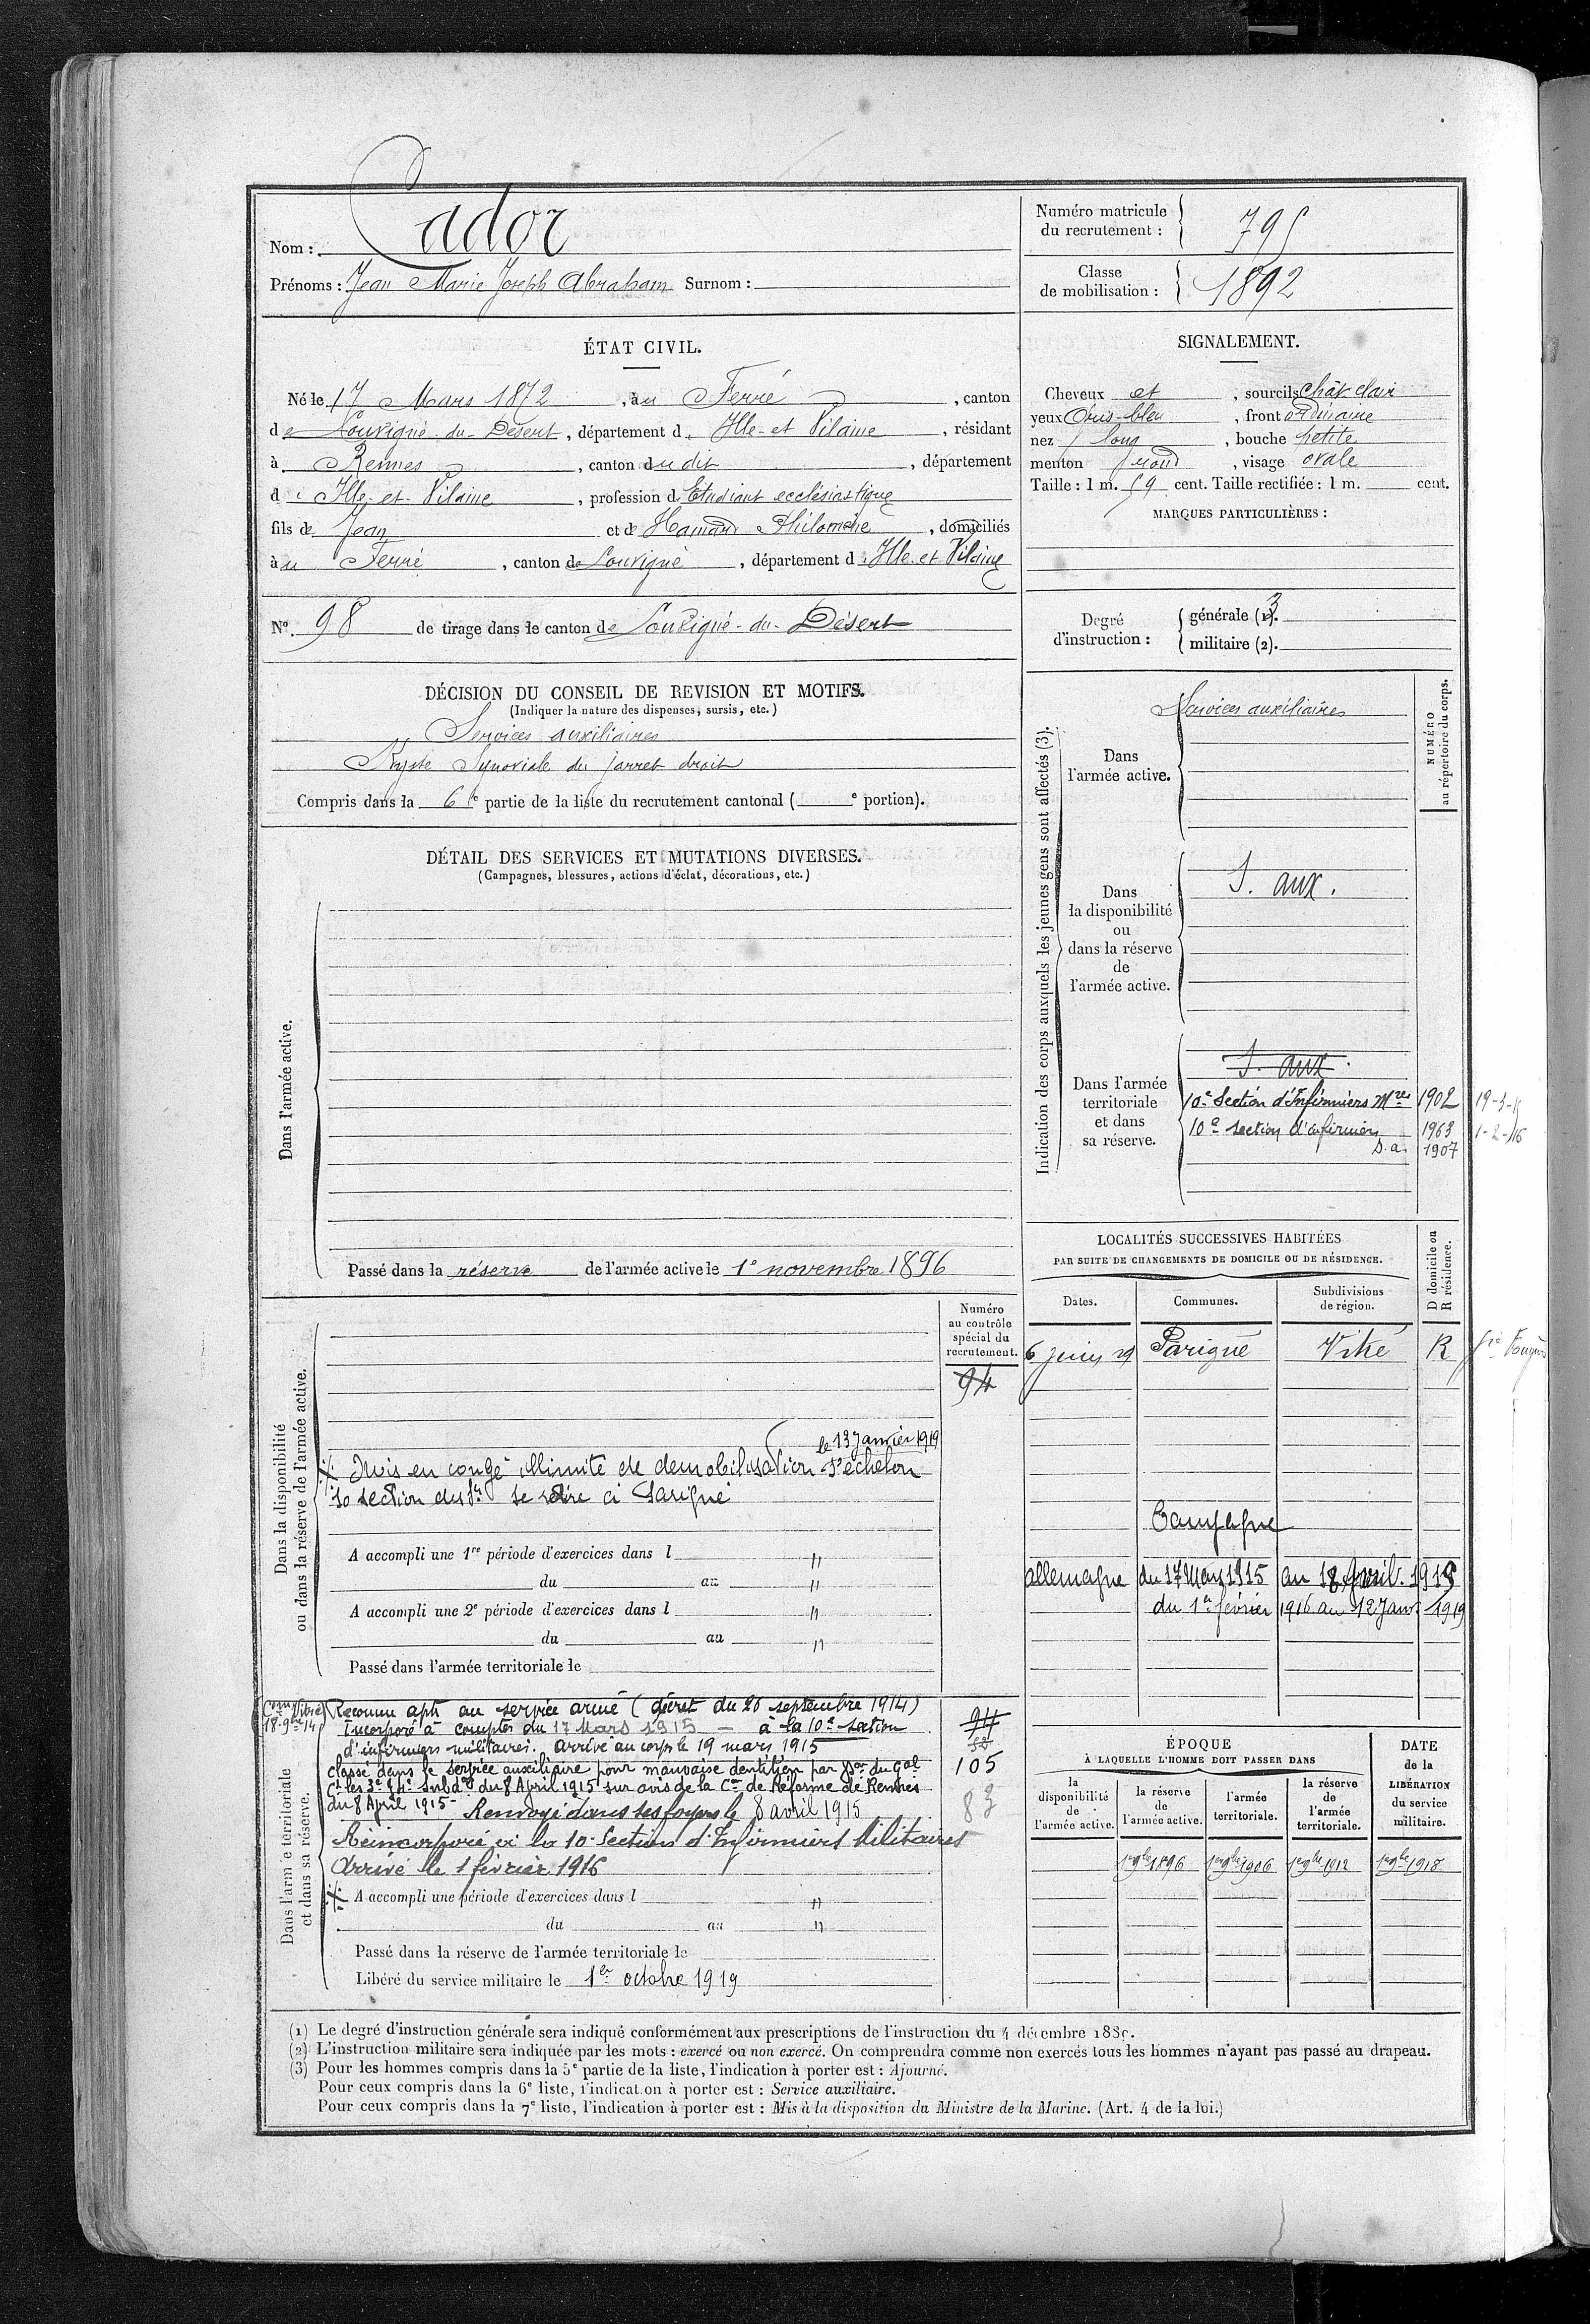 Nom : Cador
Prénoms : Jean Marie Joseph Abraham Surnom :
Numéro matricule du recrutement : 795
Classe de mobilisation : 1892
ÉTAT CIVIL.
Né le 17 Mars 1872, au Ferré, canton
de Louvigné-du-Désert, département d Ille-et-Vilaine, résidant
à Rennes, canton dudit, département
d Ille-et-Vilaine, profession d Etudiant ecclésiastique
fils de Jean et de Hamard Philomène, domiciliés
au Ferré, canton de Louvigné, département d Ille et Vilaine
N° 98 de tirage dans le canton de Louvigné-du-Désert
SIGNALEMENT.
Cheveux et, sourcils chât clair
yeux Gris-bleu, front ordinaire
nez long, bouche petite
menton rond, visage ovale
Taille : 1 m. 59 cent. Taille rectifiée : 1 m. cent.
MARQUES PARTICULIÈRES :
Degré d'instruction : générale (1). 3
militaire (2).
DÉCISION DU CONSEIL DE REVISION ET MOTIFS.
(Indiquer la nature des dispenses, sursis, etc.)
Services auxiliaires
Kyste Synoviale du jarret droit
Compris dans la 6e partie de la liste du recrutement cantonal ( e portion).
DÉTAIL DES SERVICES ET MUTATIONS DIVERSES.
(Campagnes, blessures, actions d'éclat, décorations, etc.)
Dans l'armée active.
Passé dans la réserve de l'armée active le 1er novembre 1896
Indication des corps auxquels les jeunes gens sont affectés (3).
NUMÉRO au répertoire du corps.
Dans l'armée active.
Services auxiliaires
Dans la disponibilité ou dans la réserve de l'armée active.
S. aux.
Dans l'armée territoriale et dans sa réserve.
S. aux.
10e Section d'Infirmiers Mres 1902
10e section d'infirmiers 1963 1-2-16
s.a. 1907
LOCALITÉS SUCCESSIVES HABITÉES
PAR SUITE DE CHANGEMENTS DE DOMICILE OU DE RÉSIDENCE.
Dates. Communes. Subdivisions de région. D domicile ou R résidence.
Parigné Vitré R
Campagne
allemagne du 17 Mars 1915 au 18 Avril 1915
du 1er février 1916 au 12 Janv 1919
Dans la disponibilité ou dans la réserve de l'armée active.
Numéro au contrôle spécial du recrutement.
94
le 13 Janvier 1919
Mis en congé illimité de démobilisation échelon
10 section se retire à Parigné
A accompli une 1re période d'exercices dans l "
du au "
A accompli une 2e période d'exercices dans l "
du au "
Passé dans l'armée territoriale le
Dans l'armée territoriale et dans sa réserve.
Reconnu apte au service armé (décret du 26 septembre 1914)
Incorporé à compter du 17 Mars 1915 – à la 10e section
d'infirmiers militaires. Arrivé au corps le 19 mars 1915
classé dans le service auxiliaire pour mauvaise dentition par don du Gal
Ct les 3e & 4e Subdons du 8 April 1915 sur avis de la Con de Réforme de Rennes
du 8 April 1915 – Renvoyé dans ses foyers le 8 avril 1915
Réincorporé à la 10e Section d'Infirmiers Militaires
Arrivé le 1 février 1916
94
105
83
A accompli une période d'exercices dans l "
du au "
Passé dans la réserve de l'armée territoriale le
Libéré du service militaire le 1er octobre 1919
ÉPOQUE
À LAQUELLE L'HOMME DOIT PASSER DANS
la disponibilité de l'armée active. la réserve de l'armée active. l'armée territoriale. la réserve de l'armée territoriale.
DATE de la LIBÉRATION du service militaire.
1er 9bre 1896 1er 9bre 1906 1er 9bre 1912 1er 9bre 1918
(1) Le degré d'instruction générale sera indiqué conformément aux prescriptions de l'instruction du 4 décembre
(2) L'instruction militaire sera indiquée par les mots : exercé ou non exercé. On comprendra comme non exercés tous les hommes n'ayant pas passé au drapeau.
(3) Pour les hommes compris dans la 5e partie de la liste, l'indication à porter est : Ajourné.
Pour ceux compris dans la 6e liste, l'indication à porter est : Service auxiliaire.
Pour ceux compris dans la 7e liste, l'indication à porter est : Mis à la disposition du Ministre de la Marine. (Art. 4 de la loi.)